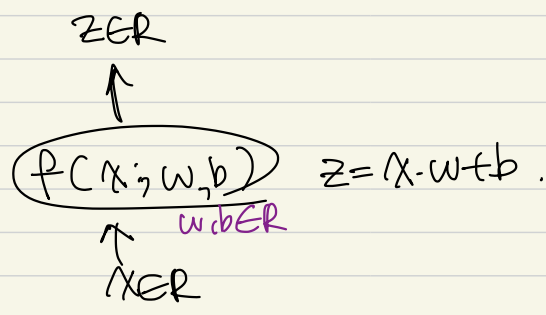 z∈R
f(x; w, b) z = x·w+b.
w,b∈R
x∈R